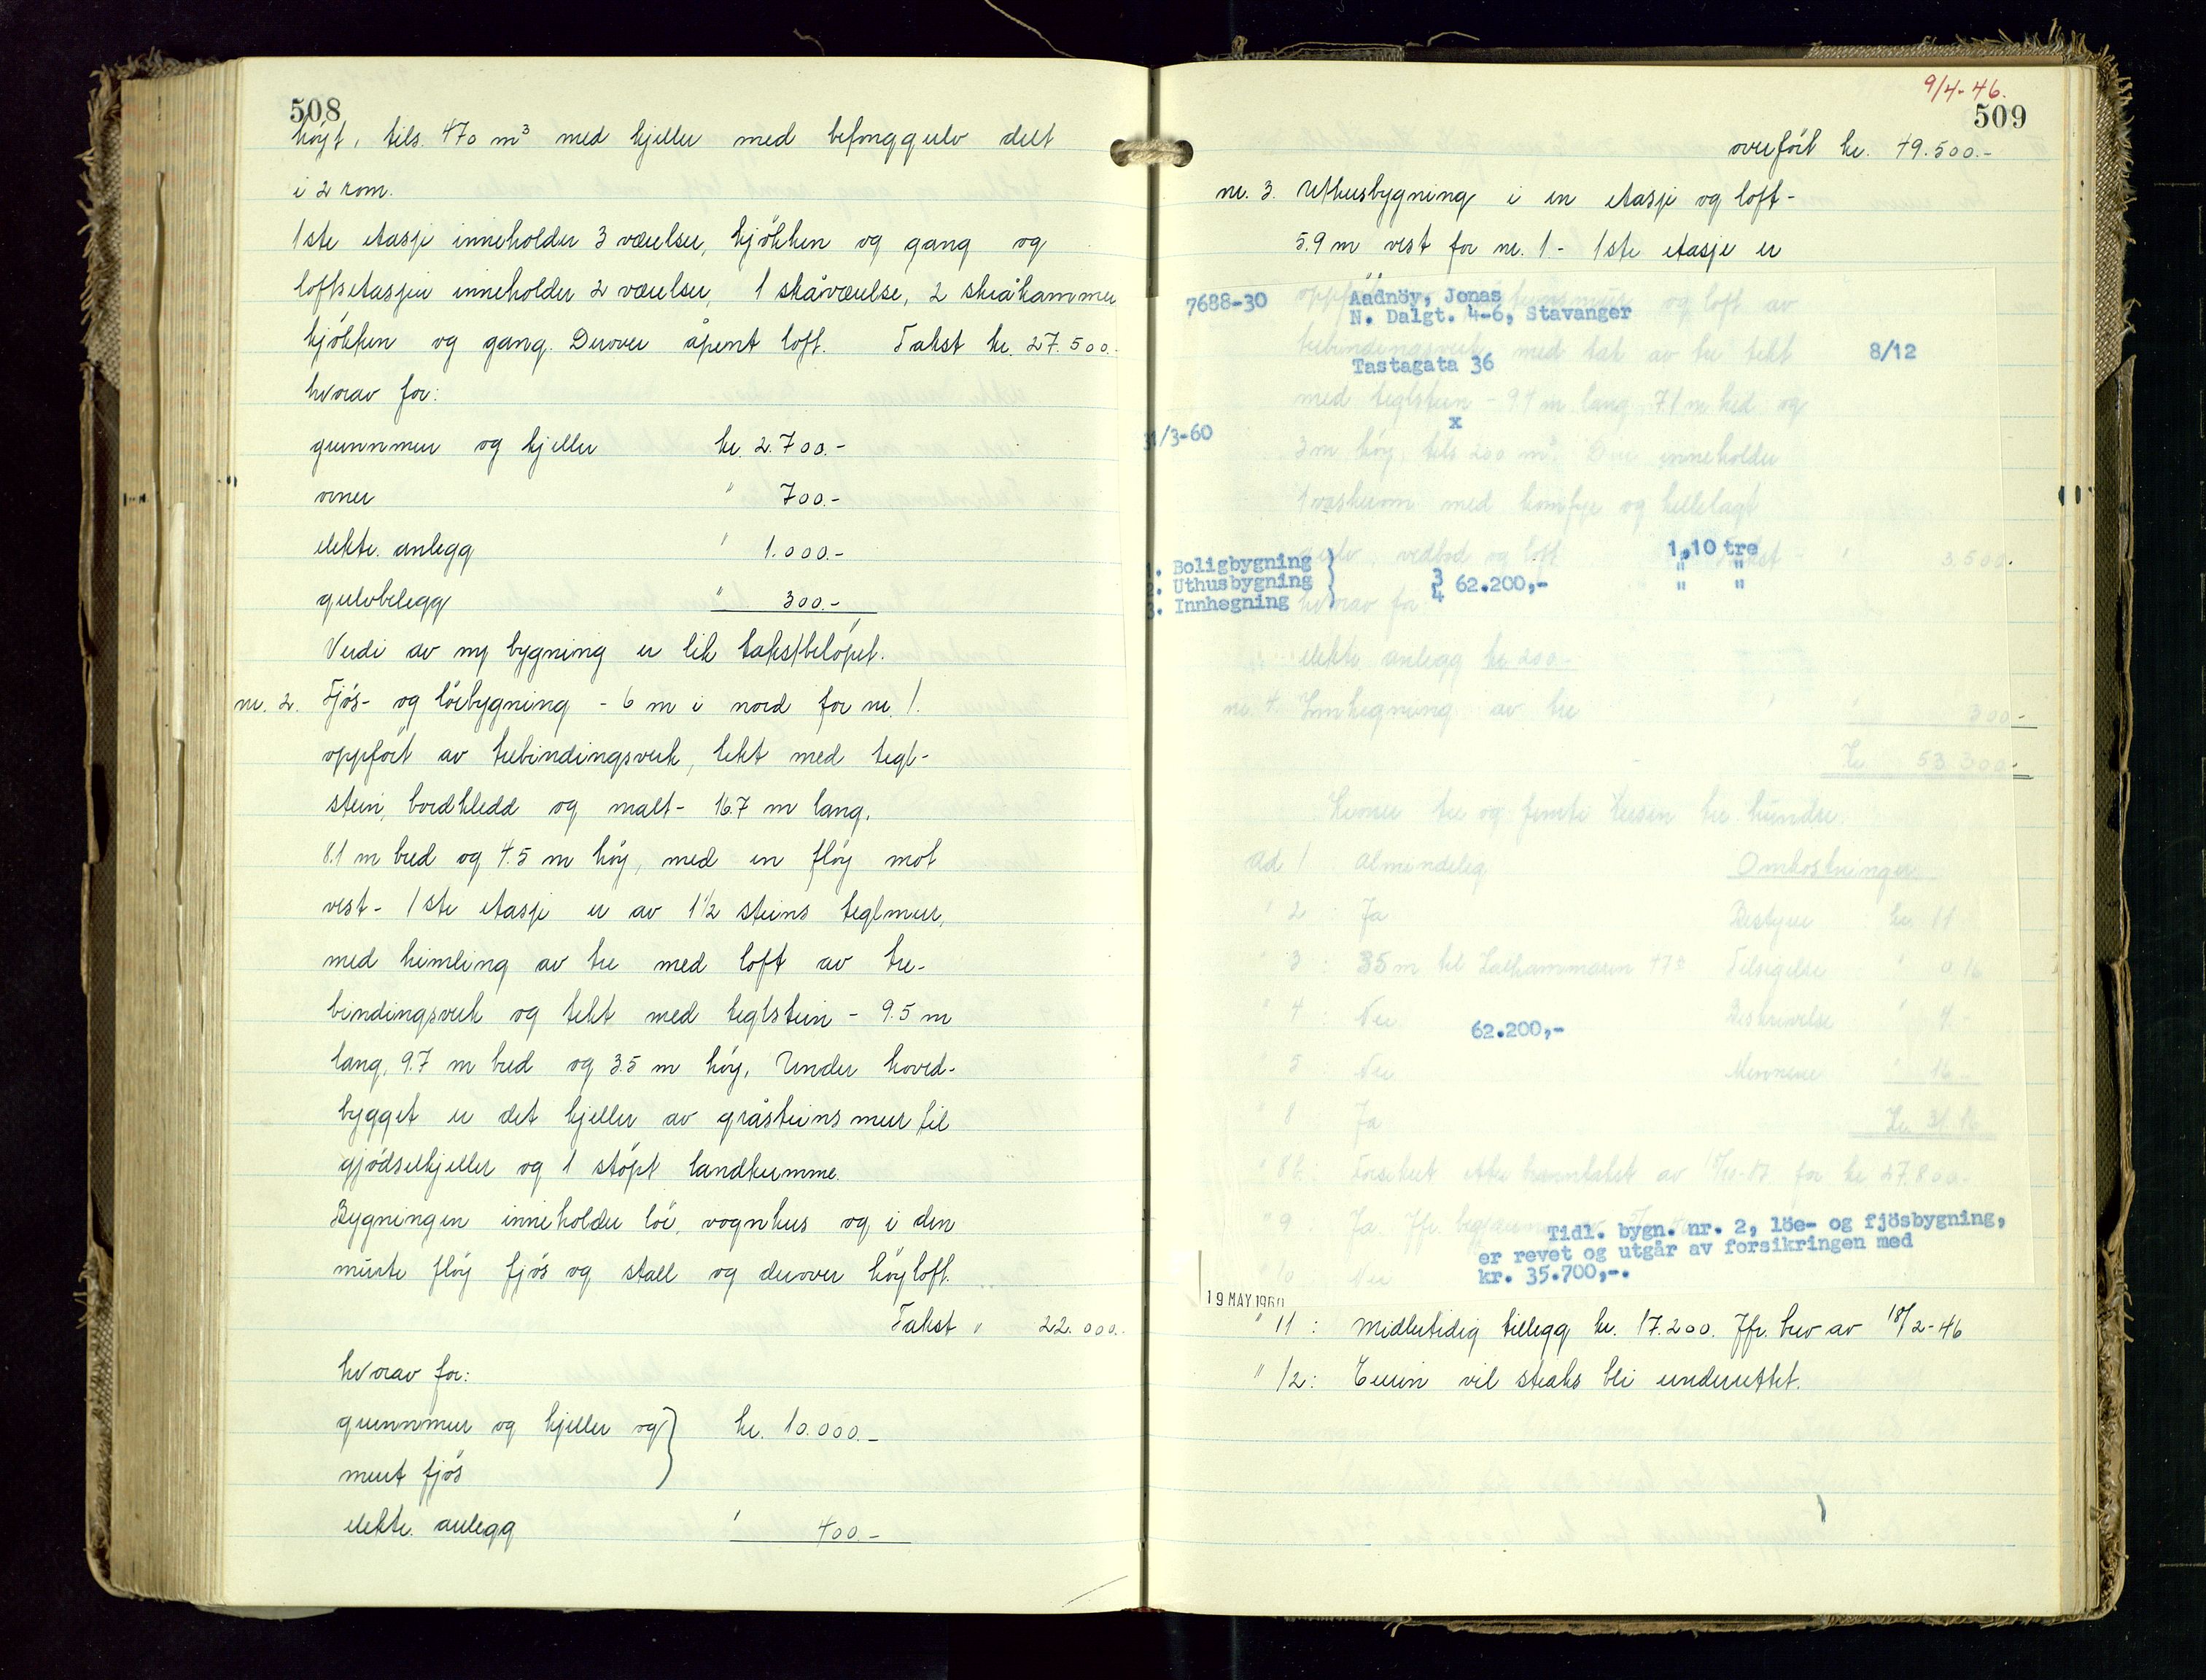 508
höyt, tils. 470 m³ med kjeller med betonggulv delt
i 2 rom.
1ste etasje inneholder 3 værelser, kjökken og gang og
loftsetasjen inneholder 2 værelser, 1 skåværelse, 2 skråkammer
kjökken og gang. Derover åpent loft. Takst kr. 27.500.-
hvorav for:
grunnmur og kjeller kr. 2.700.-
ovner " 700.-
elektr. anlegg " 1.000.-
gulvbelegg " 300.-
Verdi av ny bygning er lik takstbelöpet.
nr. 2. Fjös- og löebygning - 6 m i nord for nr. 1.
oppfört av trebindingsverk, tekt med tegl-
stein, bordkledd og malt - 16.7 m lang,
8.1 m bred og 4.5 m höy, med en flöy mot
vest - 1ste etasje er av 1½ steins teglmur,
med himling av tre med loft av tre-
bindingsverk og tekt med teglstein - 9.5 m
lang, 9.7 m bred og 3.5 m höy. Under hoved-
bygget er det kjeller av gråsteinsmur til
gjödselkjeller og 1 stöpt landkumme.
Bygningen inneholder löe, vognhus og i den
murte flöy fjös og stall og derover höyloft.
Takst " 22.000.-
hvorav for:
grunnmur og kjeller og } kr. 10.000.-
murt fjös
elektr. anlegg " 400.-
9/4-46.
509
overfört kr. 49.500.-
nr. 3. Uthusbygning i en etasje og loft -
5.9 m vest for nr. 1. - 1ste etasje er
7688-30 Aadnöy, Jonas
N. Dalgt. 4-6, Stavanger
og loft av
trebindingsverk med tak av tre tekt
8/12
Tastagata 36
med teglstein - 9.4 m lang, 7.1 m bred og
x
31/3-60
3 m höy, tils 200 m³. Den inneholder
1 vaskerom med komfyr og hellelagt
gulv, vedbod og loft. Takst - " 3.500.-
1,10 tre
1. Boligbygning
2. Uthusbygning } 3/4 62.200,- " "
3. Innhegning " "
hvorav for:
elektr. anlegg kr 200.-
nr. 4. Innhegning av tre " 300.-
Kr. 53.300.-
Kroner tre og femti tusen tre hundre.
ad 1 : Almindelig Omkostninger
" 2 : Ja Bestyrer kr. 11
" 3 : 35 m til Tilsigelse " 0.16
" 4 : Nei Beskrivelse " 4
62.200,-
" 5 : Nei Mennene " 16
" 8 : Ja Kr. 31.16
" 8b: Forsikret etter av for kr 27.800.-
" 9 : Ja. Jfr.
Tidl. bygn. nr. 2, löe- og fjösbygning,
er revet og utgår av forsikringen med
kr. 35.700,-.
" 10 Nei
19 MAY 1960
" 11 : Midlertidig tillegg kr. 17.200. Jfr. brev av 18/2-46
" 12 : Eieren vil straks bli underrettet.